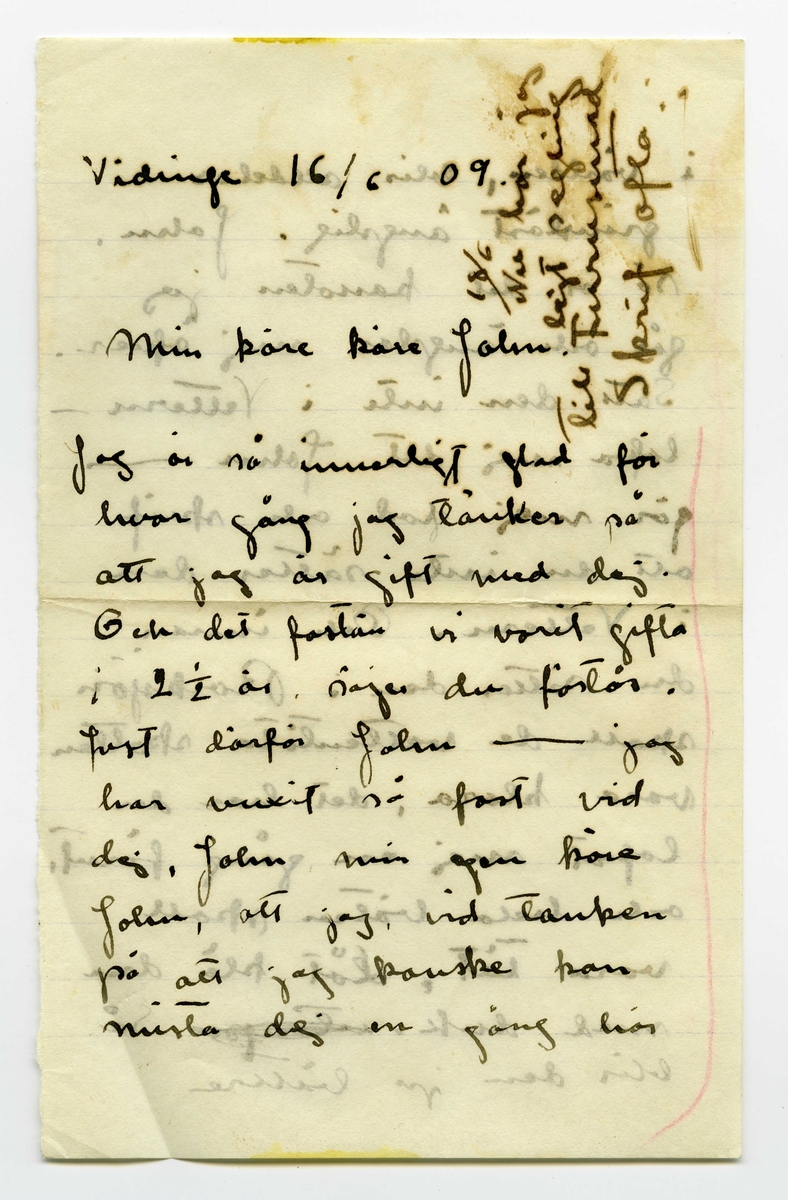 Vidinge 16/6 09.
18/6
Nu har jag
lagt segling
till Furusund
Skrif ofta.
Min käre käre John.
Jag är så innerligt glad för
hvar gång jag tänker på
att jag är gift med dej.
Och det fastän vi varit gifta
i 2 ½ år, säger du förstås.
Just därför John — jag
har vuxit så fast vid
dej, John, min egen käre
John, att jag, vid tanken
på att jag kanske kan
mista dej en gång här